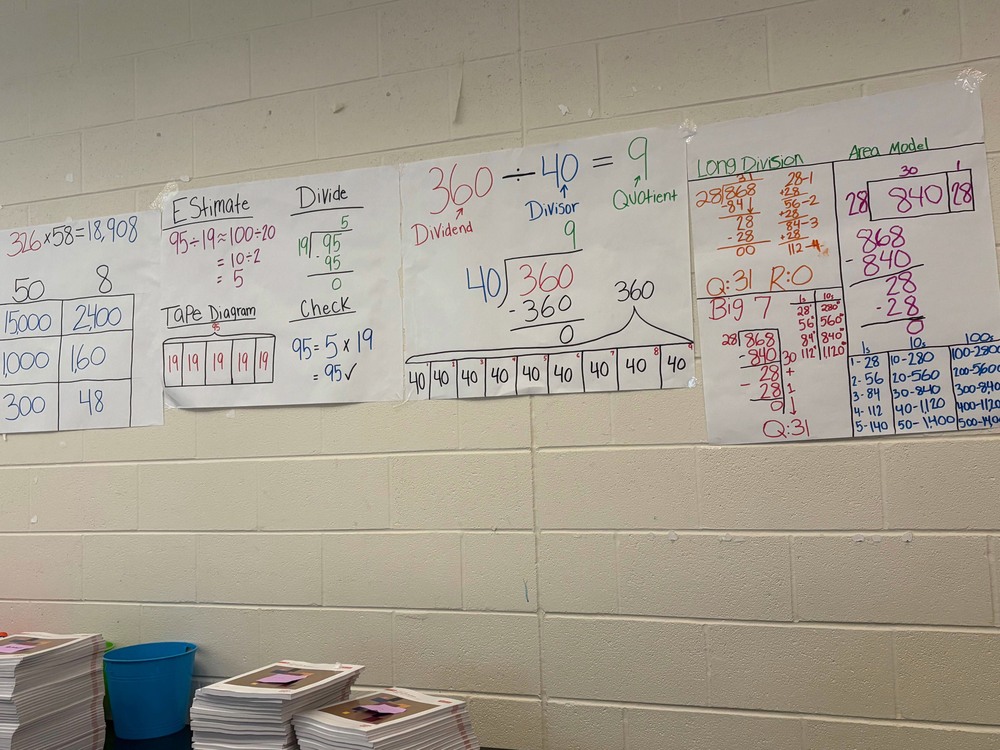 326×58=18,908
50 8
15000 2,400
1,000 1,60
300 48
EStimate
95÷19≈100÷20
= 10÷2
= 5
Divide
5
19 95
-95
0
Tape Diagram
95
19 19 19 19 19
Check
95=5×19
=95✓
360÷40=9
Dividend
Divisor
Quotient
9
40 360
-360
0
360
40 40 40 40 40 40 40 40 40
Long Division
31
28 868
-84↓
28
-28
00
28-1
+28
56-2
+28
84-3
+28
112-4
Q:31 R:0
Big 7
28 868
-840 30
28 +
-28 1
0 ↓
Q:31
1s 10s
28 280
56 560
84 840
112 1120
Area Model
30 1
28 840 28
868
-840
28
-28
0
1s 10s 100s
1-28 10-280 100-2800
2-56 20-560 200-5600
3-84 30-840 300-840
4-112 40-1,120 400-1120
5-140 50-1,400 500-140